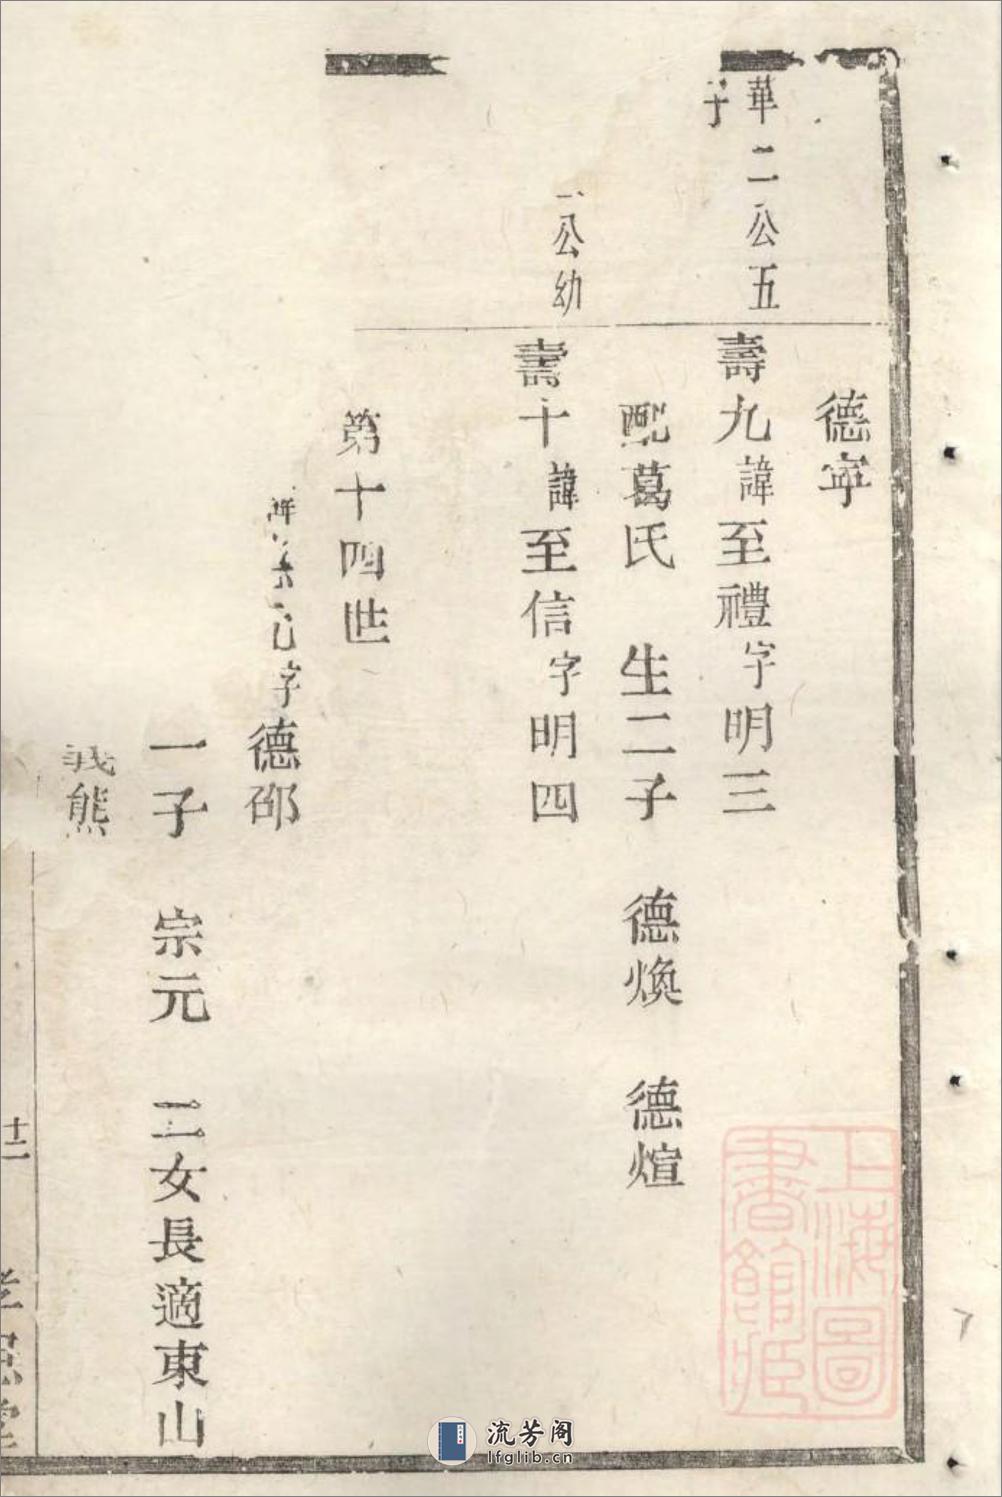 德寧
華二公五
子
壽九諱至禮字明三
配葛氏 生二子 德煥 德煊
公幼
壽十諱至信字明四
第十四世
字德邵
一子 宗元 二女長適東山
義熊
十二
上海圖書館藏
流芳阁
lfglib.cn